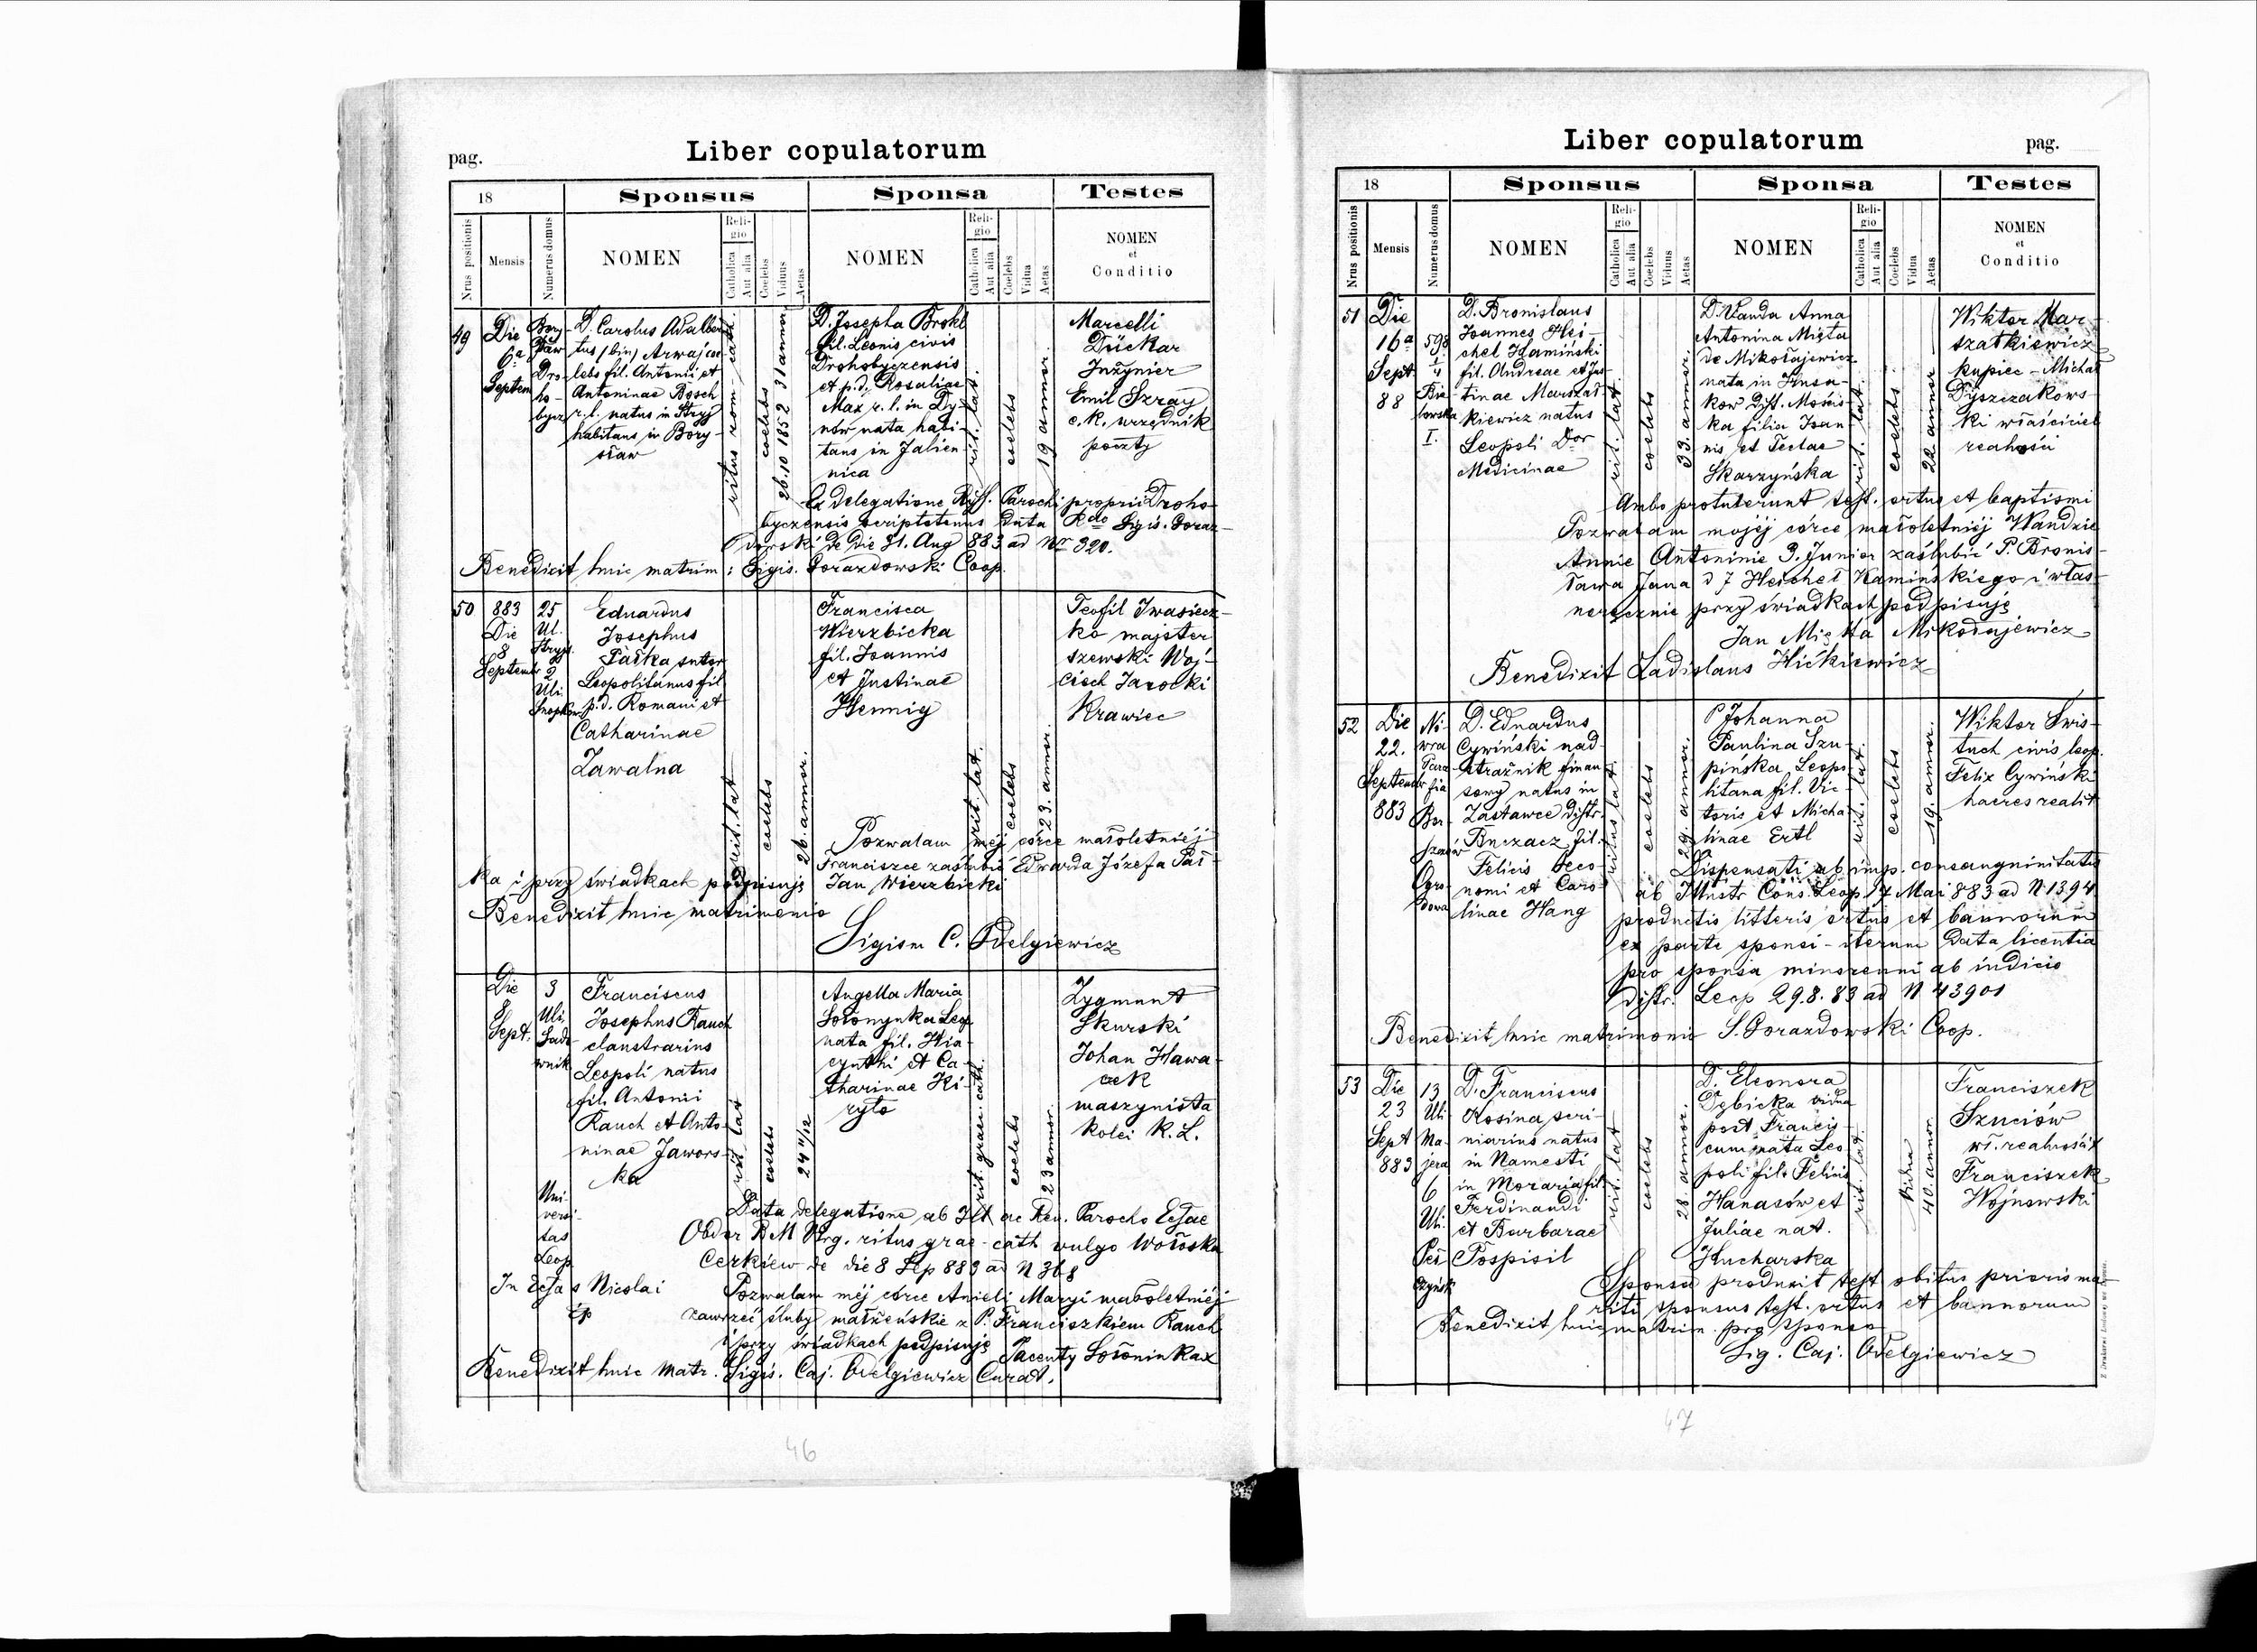 Liber copulatorum
pag.
18
Sponsus
Sponsa
Testes
Nrus positionis
Mensis
Numerus domus
NOMEN
Religio
Catholica
Aut alia
Coelebs
Viduus
Aetas
NOMEN
Religio
Catholica
Aut alia
Coelebs
Vidua
Aetas
NOMEN
et
Conditio
49
Die
6a
Septem
Bory-
sław
Dro-
ho-
bycz
D. Carolus Adalber
tus (bin) Arwaj coe
lebs fil. Antonii et
Antoninae Bosch
r. l. natus in Stryj
habitans in Bory-
sław
ritus rom. cath.
coelebs
26.10 1852 31 annor.
D. Josepha Brokl
fil. Leonis civis
Drohobyczensis
et p.d. Rosaliae
Max r. l. in Dy-
nów nata habi-
tans in Jalien-
nica
rit. lat.
coelebs
19 annor.
Marcelli
Dückar
Inżynier
Emil Szray
c.k. urzędnik
poczty
Ex delegatione Rssi. Parochi proprii Droho-
byczensis scriptotenus data Rdo Sigis. Goraz-
dowski de die 31. Aug 883 ad Nr 320.
Benedixit huic matrim: Sigis. Gorazdowski Coop.
50
883
Die
8
Septembr
25
Ul.
Stryj.
2
Uli.
Snopkow
Eduardus
Josephus
Pałka sutor
Leopolitanus fil
p.d. Romani et
Catharinae
Zawalna
rit. lat
coelebs
26. annor.
Francisca
Wierzbicka
fil. Joannis
et Justinae
Hennig
rit. lat.
coelebs
23. annor.
Teofil Iwasiecz-
ko majster
szewski Woj-
ciech Jarocki
Krawiec
Pozwalam mej córce małoletniéj
Franciszce zaślubić Edwarda Józefa Pał-
ka i przy świadkach podpisuję Jan Wierzbicki
Benedixit huic matrimonio
Sigism C. Odelgiewicz
Die
8
Sept.
3
Uli.
Sado
wnik
Franciscus
Josephus Rauch
claustrarius
Leopoli natus
fil. Antonii
Rauch et Anto-
ninae Jawors-
ka
rit lat
coelebs
24 11/12
Angella Maria
Sołonynka Leop
nata fil. Hia-
cynthi et Ca-
tharinae Ki-
ryło
rit graec. cath.
coelebs
23 annor.
Zygmunt
Skurski
Johan Hawa-
czek
maszynista
kolei K. L.
Uni-
versi-
tas
Leop.
Data delegatione ab Ill ac Rev. Parocho Eccae
Obdor B M Vrg. ritus grae-cath vulgo Wołoska
Cerkiew de die 8 Sep 883 ad N 368
In Ecca s Nicolai
Pozwalam méj córce Anieli Maryi małoletniéj
zawrzéć śluby małżeńskie z P. Franciszkiem Rauch
i przy świadkach podpisuję Jacenty Sołoninka
Benedixit huic Matr. Sigis. Caj. Odelgiewicz Curat.
46
Liber copulatorum
pag.
18
Sponsus
Sponsa
Testes
Nrus positionis
Mensis
Numerus domus
NOMEN
Religio
Catholica
Aut alia
Coelebs
Viduus
Aetas
NOMEN
Religio
Catholica
Aut alia
Coelebs
Vidua
Aetas
NOMEN
et
Conditio
51
Die
16a
Sept
88
598
1/4
Bie-
lowska
I.
D. Bronislaus
Joannes Hei-
chel Kamiński
fil. Andreae et Jus-
tinae Marszał
kiewicz natus
Leopoli Dor
Medicinae
rit. lat
coelebs
33. annor.
D. Wanda Anna
Antonina Mięta
de Mikołajewicz
nata in Husa-
ków Distr. Mościs-
ka filia Joan-
nis et Teclae
Skarzyńska
rit. lat.
coelebs
22 annor
Wiktor Mar-
szałkiewicz
kupiec - Michał
Dyszczakows-
ki właściciel
realności
Ambo protulerunt test. ortus et baptismi
Pozwalam mojéj córce małoletniéj Wandzie
Annie Antoninie 3. Junior zaślubić P. Bronis-
ława Jana 2 J Heichel Kamińskiego i włas-
noręcznie przy świadkach podpisuję
Jan Mięta Mikołajewicz
Benedixit Ladislaus Hićkiewicz
52
Die
22.
Septembr
883
Ni-
wra
Para-
fia
Bor-
szczów
Ogro-
dowa
D. Eduardus
Cywiński nad-
strażnik finan
sowy natus in
Zastawce Distr.
Buczacz fil.
Felicis Oeco-
nomi et Caro-
linae Hang
ritus lat.
coelebs
29. annor.
P Johanna
Paulina Szu-
pińska Leopo-
litana fil. Vic-
toris et Micha-
linae Ertl
rit. lat.
coelebs
19. annor.
Wiktor Świs-
tuch civis leop.
Felix Cywiński
haeres realit
Dispensati ab imp. consanguinitatis
ab Illustr Cons. Leop. 17 Mai 883 ad N 1394
productis litteris ortus et bannorum
ex parte sponsi - iterum Data licentia
pro sponsa minorenni ab indicio
distr. Leop 29.8.83 ad N 43901
Benedixit huic matrimonio S. Gorazdowski Coop.
53
Die
23
Sept
883
13
Uli
Ma-
jera
6
Uli.
Peł
czyńsk
D. Franciscus
Rosina scri-
niarius natus
in Namesti
in Moravia fil
Ferdinandi
et Barbarae
Pospisil
rit. lat
coelebs
28. annor.
D. Eleonora
Dębicka vidua
post Francis-
cum nata Leo-
poli fil. Felicis
Hanasów et
Juliae nat.
Kucharska
rit. lat.
Vidua
40. annor.
Franciszek
Szuciów
wł. realności
Franciszek
Wojnowski
Sponsa produxit test obitus prioris ma-
riti sponsus test. ortus et bannorum
Benedixit huic matrim. pro sponso
Sig. Caj. Odelgiewicz
47